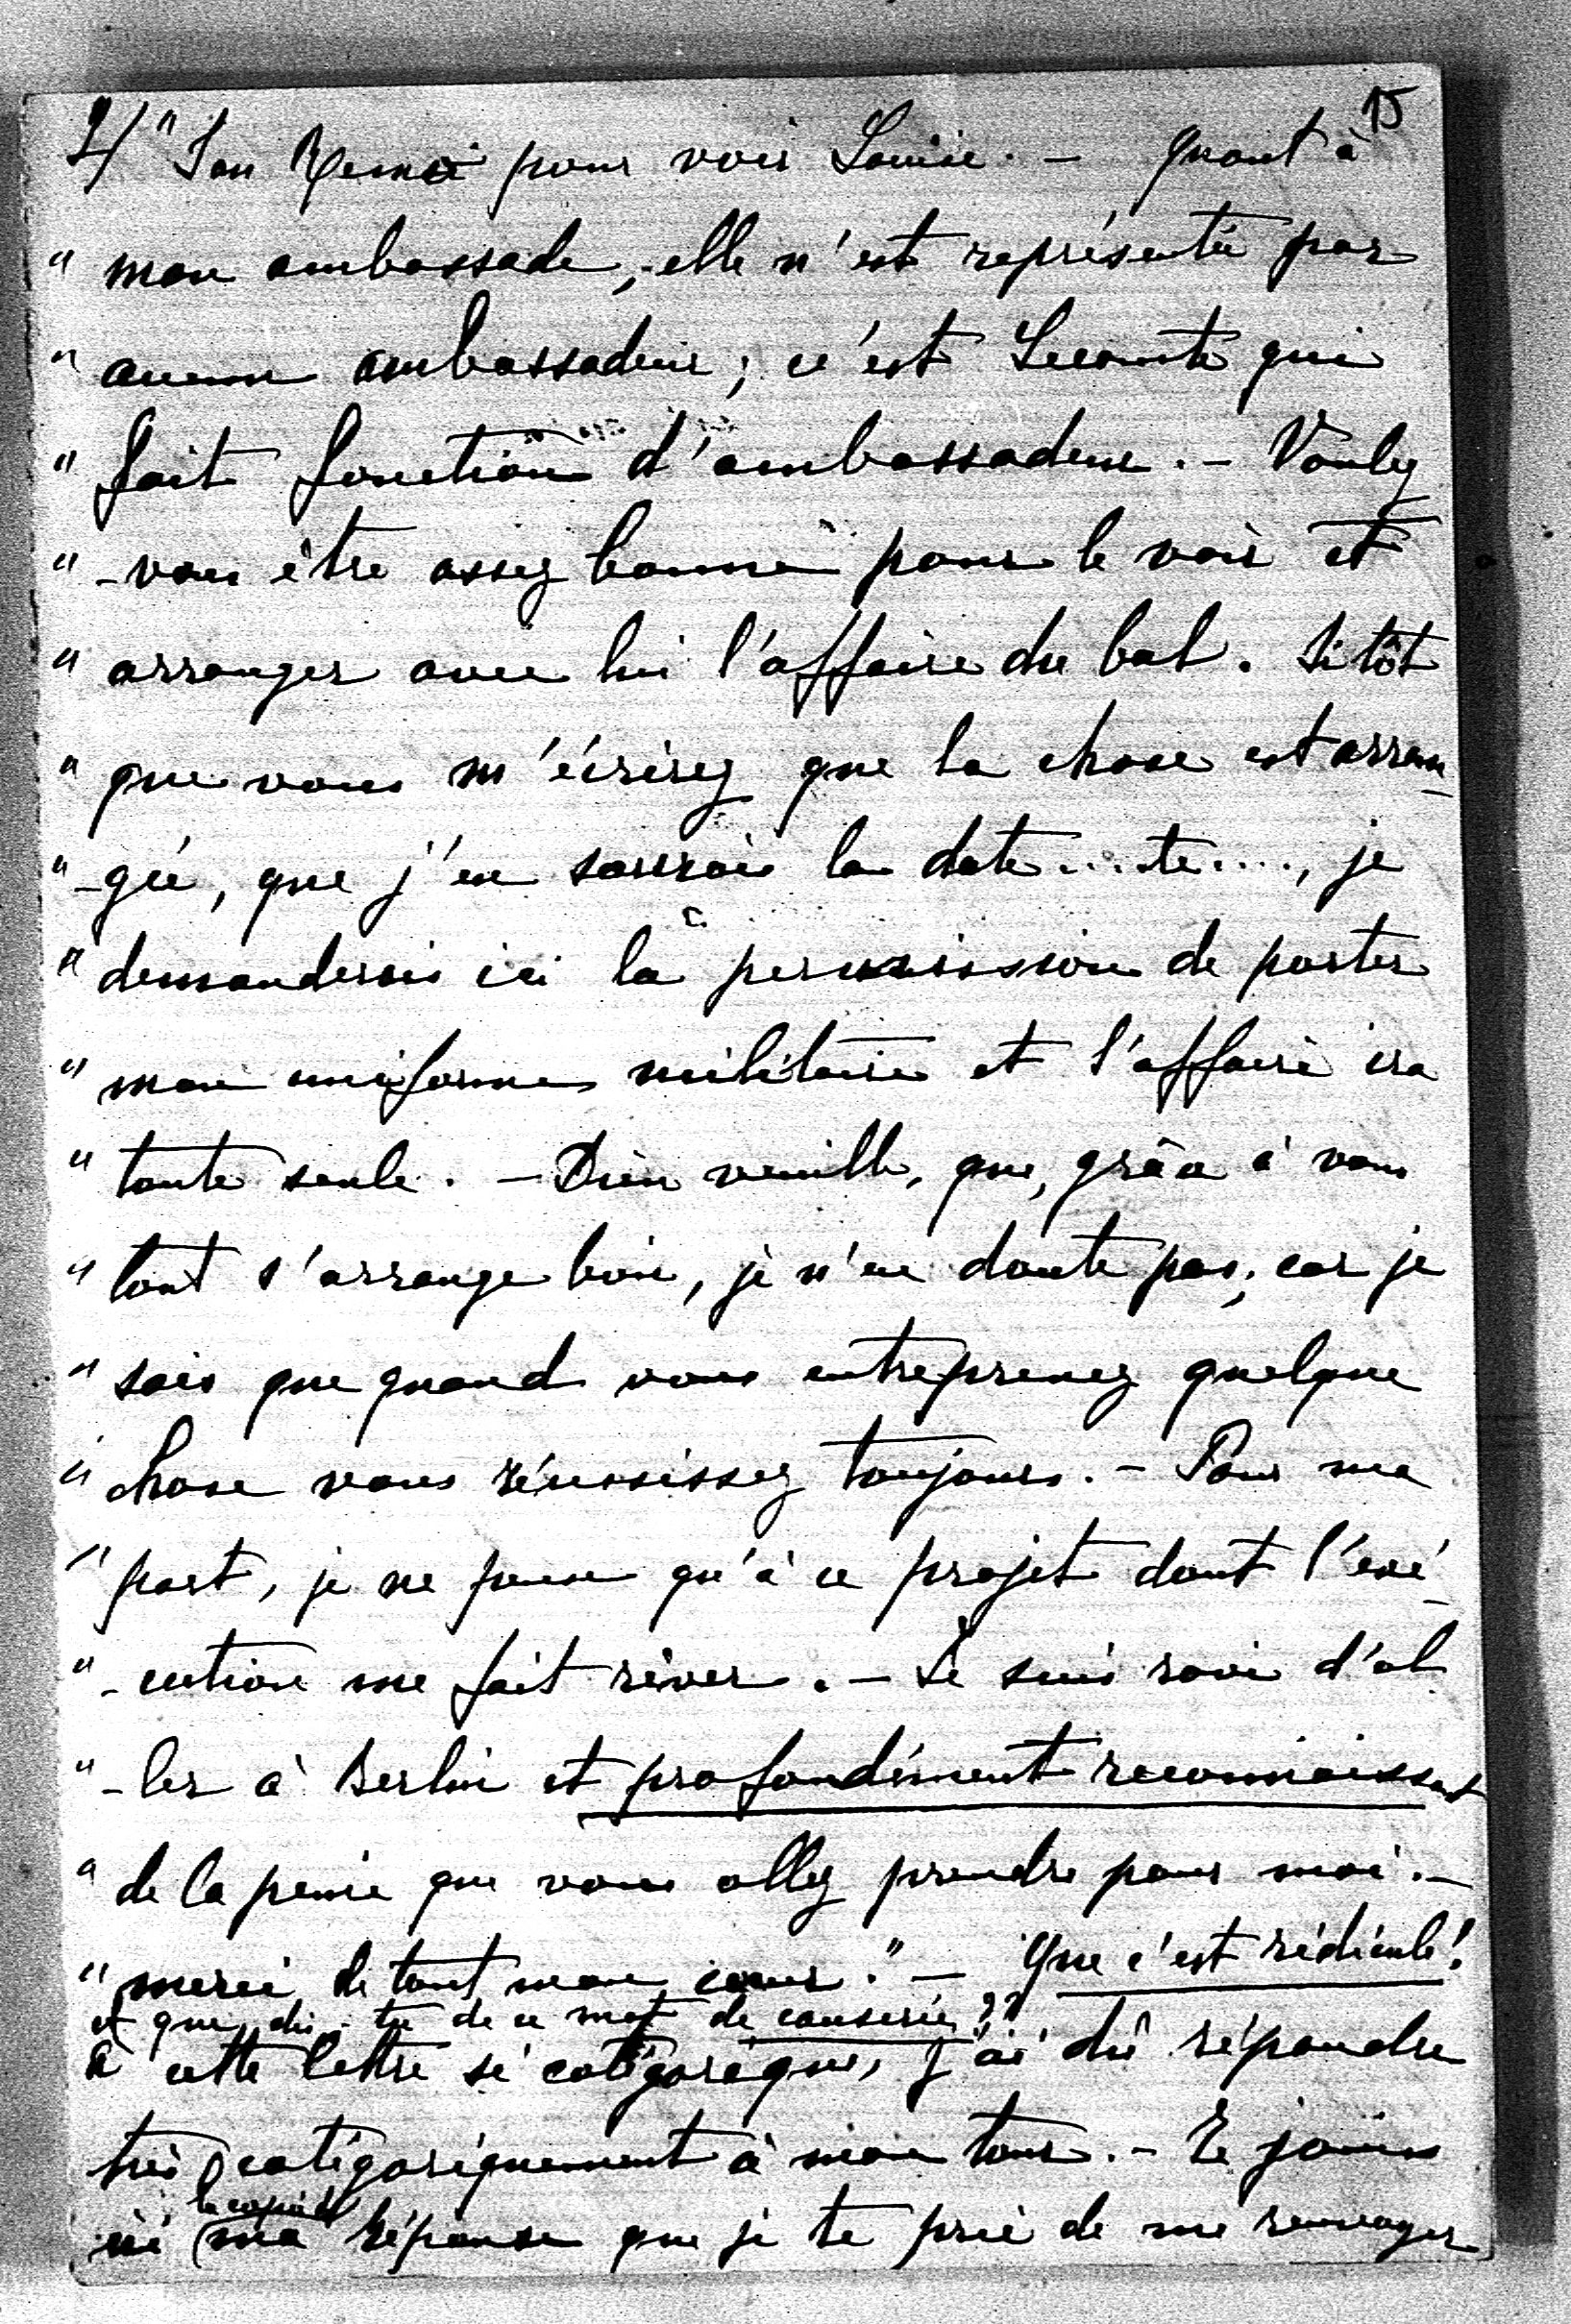 4/ 15
" San Remo pour voir Louise. – Quant à
" mon ambassade, elle n'est représentée par
" aucun ambassadeur; c'est Lecomte qui
" fait fonction d'ambassadeur. – Voulez
" -vous être assez bonne pour le voir et
" arranger avec lui l'affaire du bal. Sitôt
" que vous m'écrirez que la chose est arran-
" -gée, que j'en saurais la date...te...., je
" demanderais ici la permission de porter
" mon uniforme militaire et l'affaire ira
" toute seule. – Dieu veuille, que, grâce à vous
" tout s'arrange bien, je n'en doute pas, car je
" sais que quand vous entreprenez quelque
" chose vous réussissez toujours. – Pour ma
" part, je ne pense qu'à ce projet dont l'exé-
" -cution me fait rêver. – Je suis ravi d'al
" -ler à Berlin et profondément reconnaissant
" de la peine que vous allez prendre pour moi. –
" merci de tout mon cœur." – Que c'est rédicule!
et que dis-tu de ce mot de causerie??
à cette lettre si catégorique, j'ai dû répondre
très catégoriquement à mon tour. – Je joins
la copie de
ici ma réponse que je te prie de me renvoyer